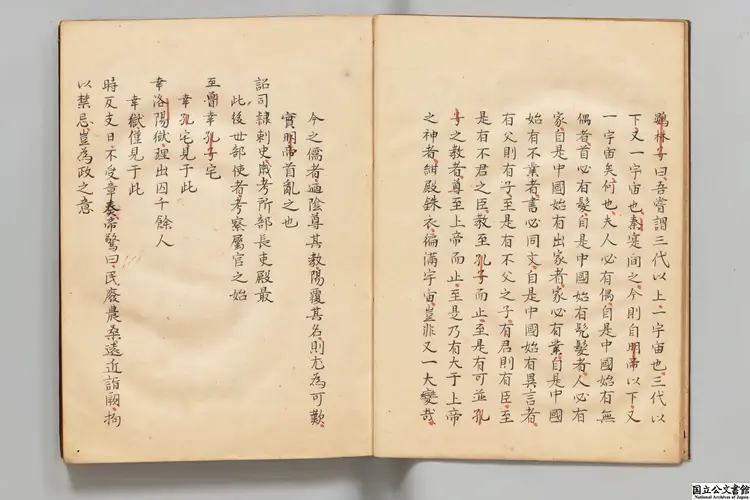 林子曰吾嘗謂三代以上一宇宙也三代以
下又一宇宙也秦寔間之今則自明帝以下又
一宇宙矣何也夫人必有偶自是中國始有無
偶者首必有髮自是中國始有髡髮者人必有
家自是中國始有出家者家必有業自是中國
始有不業者書必同文自是中國始有異言者
有父則有子至是有不父之子有君則有臣至
是有不君之臣教至孔子而止至是有可並孔
子之教者尊至上帝而止至是乃有大于上帝
之神者紺殿銖衣徧滿宇宙豈非又一大變哉
今之儒者迺陰尊其教陽覆其名則尤為可歎
實明帝首亂之也
詔司隸刺史歲考所部長吏殿最
此後世部使者考察屬官之始
至魯幸孔子宅
幸孔宅見于此
幸洛陽獄理出囚千餘人
幸獄僅見于此
時反支日不受章奏帝驚曰民廢農桑遠近詣闕拘
以禁忌豈為政之意
国立公文書館
National Archives of Japan